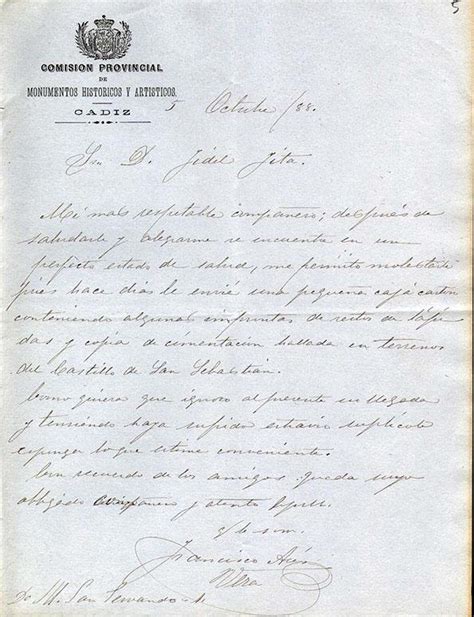 5
COMISION PROVINCIAL
DE
MONUMENTOS HISTORICOS Y ARTISTICOS.
CADIZ
5 Octubre /88.
Sr. D. Fidel Fita.
Mi mas respetable compañero; después de
saludarle y alegrarme se encuentre en un
perfecto estado de salud, me permito molestarle
pues hace dias le envié una pequeña caja carton
conteniendo algunas improntas de restos de lápi
das y copia de cimentacion hallada en terrenos
del Castillo de San Sebastian.
Como quiera que ignoro al presente su llegada
y temiendo haya sufrido estravio suplicole
esponga lo que estime conveniente.
Con recuerdo de los amigos queda suyo
obligado compañero y atento
q/b s.m.
Francisco
Vera
San Fernando